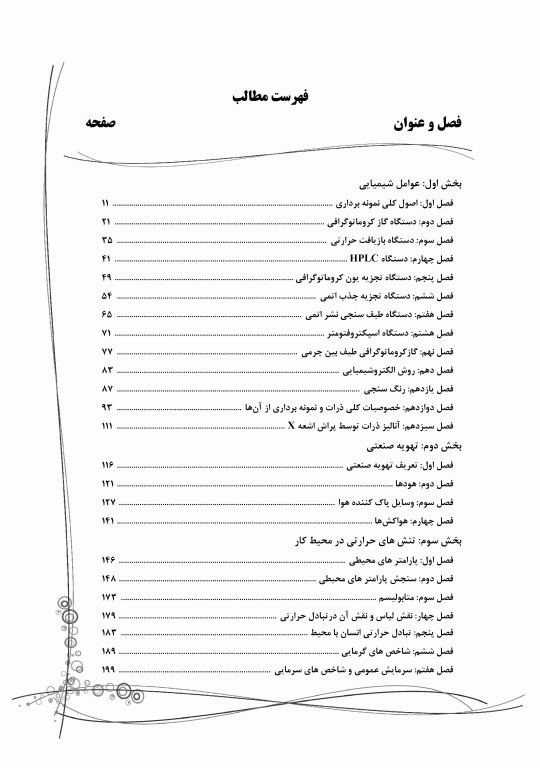 فهرست مطالب
فصل و عنوان صفحه
بخش اول: عوامل شیمیایی
فصل اول: اصول کلی نمونه برداری ........ ۱۱
فصل دوم: دستگاه گاز کروماتوگرافی ........ ۲۱
فصل سوم: دستگاه بازیافت حرارتی ........ ۳۵
فصل چهارم: دستگاه HPLC ........ ۴۱
فصل پنجم: دستگاه تجزیه یون کروماتوگرافی ........ ۴۹
فصل ششم: دستگاه تجزیه جذب اتمی ........ ۵۴
فصل هفتم: دستگاه طیف سنجی نشر اتمی ........ ۶۵
فصل هشتم: دستگاه اسپکتروفتومتر ........ ۷۱
فصل نهم: گازکروماتوگرافی طیف بین جرمی ........ ۷۷
فصل دهم: روش الکتروشیمیایی ........ ۸۳
فصل یازدهم: رنگ سنجی ........ ۸۷
فصل دوازدهم: خصوصیات کلی ذرات و نمونه برداری از آن‌ها ........ ۹۳
فصل سیزدهم: آنالیز ذرات توسط پراش اشعه X ........ ۱۱۱
بخش دوم: تهویه صنعتی
فصل اول: تعریف تهویه صنعتی ........ ۱۱۶
فصل دوم: هودها ........ ۱۲۱
فصل سوم: وسایل پاک کننده هوا ........ ۱۲۷
فصل چهارم: هواکش‌ها ........ ۱۴۱
بخش سوم: تنش های حرارتی در محیط کار
فصل اول: پارامتر های محیطی ........ ۱۴۶
فصل دوم: سنجش پارامتر های محیطی ........ ۱۴۸
فصل سوم: متابولیسم ........ ۱۷۳
فصل چهار: نقش لباس و نقش آن درتبادل حرارتی ........ ۱۷۹
فصل پنجم: تبادل حرارتی انسان با محیط ........ ۱۸۳
فصل ششم: شاخص های گرمایی ........ ۱۸۹
فصل هفتم: سرمایش عمومی و شاخص های سرمایی ........ ۱۹۹